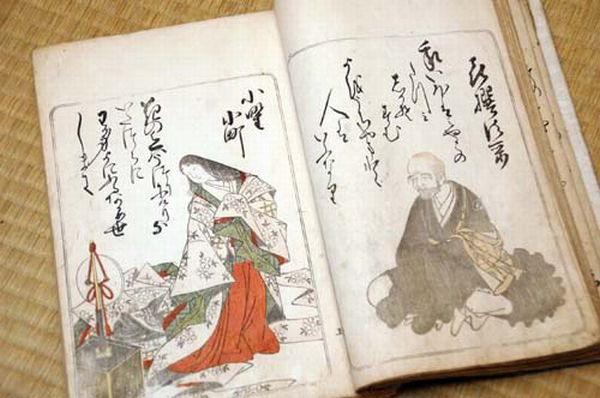 喜撰法師
我いほは都の
たつみ
しかそすむ
よをうち山と
人は
いふなり
小野
小町
花の色はうつりにけりな
いたつらに
わか身よにふるなかめせ
しまに